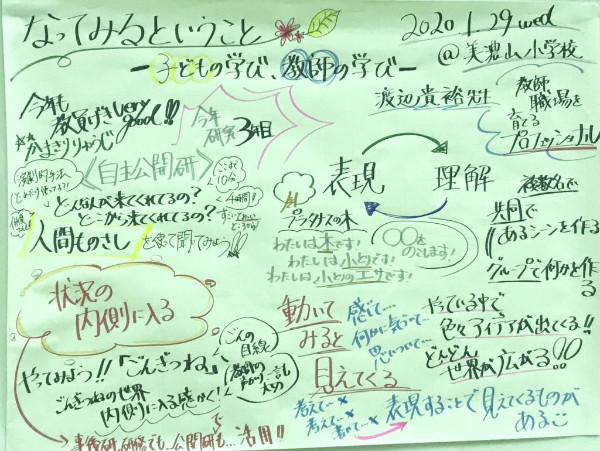 なってみるということ
ー子どもの学び、教師の学びー
2020.1.29 wed
@美濃山小学校
渡辺貴裕先生
教師
職場を
育てる
プロフェッショナル
今年も
very
good!!
今年
研究3年目
《自主公開研》
ここまで
10分
4時間!!
どんな人が来てくれてるの?
どこから来てくれてるの?
人間ものさし
表現
理解
プラタナスの木
わたしは木です!
わたしは小とりです!
わたしは小とりのエサです!
〇〇を
のこします!
複数名で
共同で
あるシーンを作る
グループで何かを作る
状況の
内側に入る
動いて
みると
見えてくる
感じて…
何かに気づいて…
思いついて…
やっている中で
色々アイデアが出てくる!!
どんどん
世界が広がる!!
やってみよう!!「ごんぎつね」
ごんぎつねの世界
内側に入る感かく!
ごんの
目線
教師の
考えて…×
考えて…×
書いて…×
表現することで見えてくるものが
ある
事後研、研修でも、公開研も…活用!!